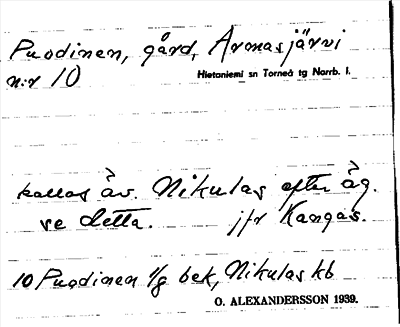 Puodinen, gård, Armasjärvi
n:r 10 Hietaniemi sn Torneå tg Norrb. l.
kallas äv. Nikulas efter äg.
se detta. jfr Kangas.
10 Puodinen 1/g bek, Nikulas kb
O. ALEXANDERSSON 1939.